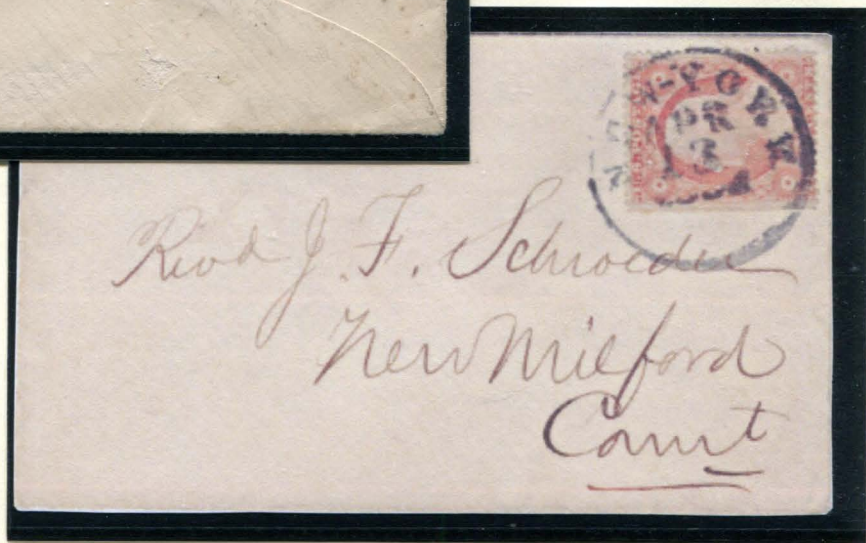 NEW-YORK
APR
13
Revd J. F. Schroeder
New Milford
Connt